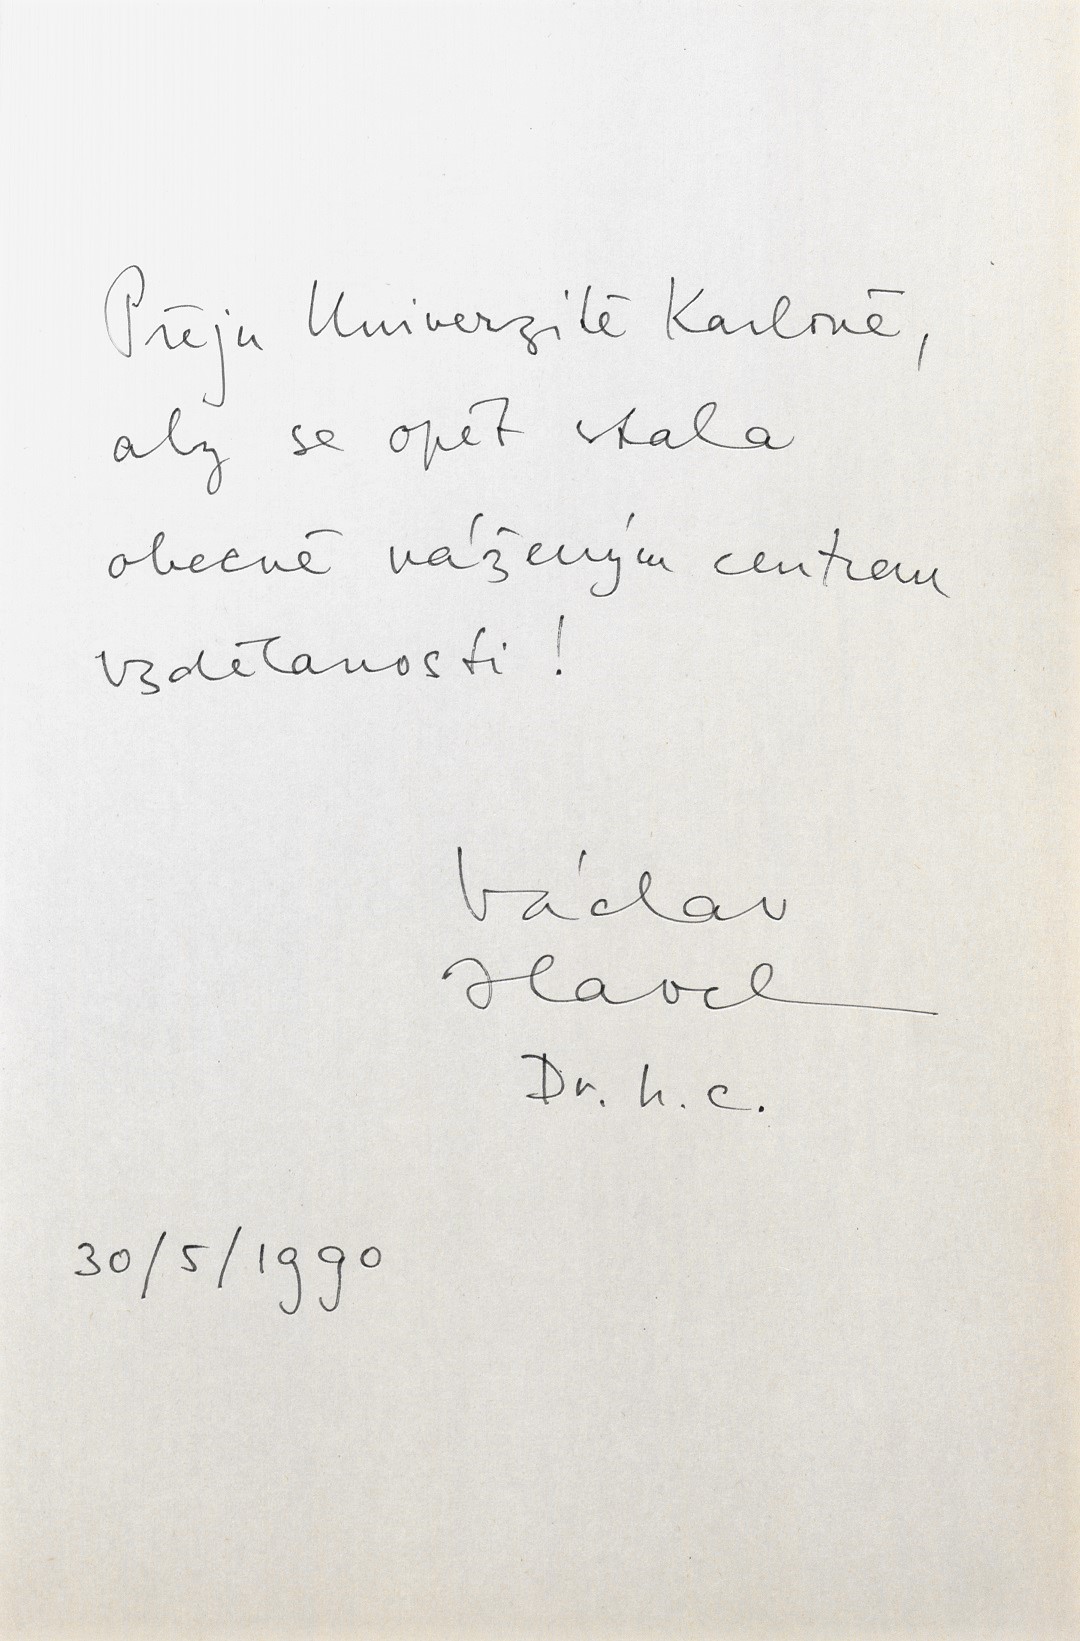 Přeju Univerzitě Karlově,
aby se opět stala
obecně váženým centrem
vzdělanosti!
Václav
Havel
Dr. h. c.
30/5/1990